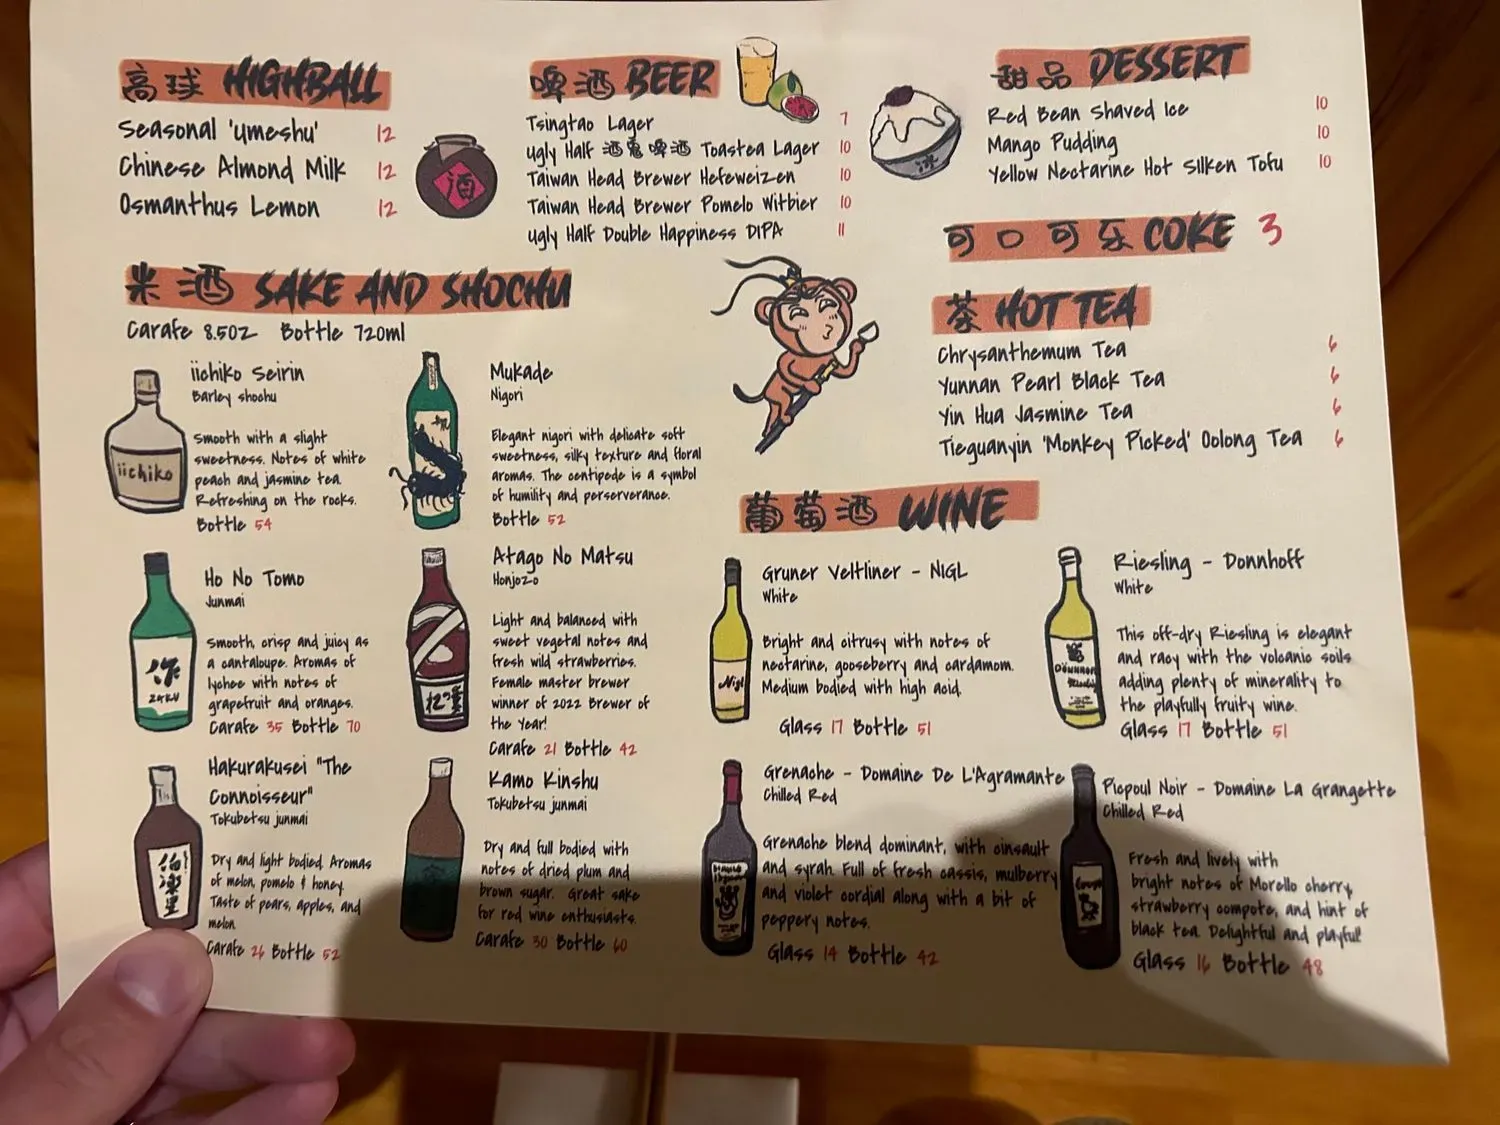 高球 HIGHBALL
Seasonal 'Umeshu' 12
Chinese Almond Milk 12
Osmanthus Lemon 12
酒
啤酒 BEER
Tsingtao Lager 7
Ugly Half 酒鬼啤酒 Toasted Lager 10
Taiwan Head Brewer Hefeweizen 10
Taiwan Head Brewer Pomelo Witbier 10
Ugly Half Double Happiness DIPA 11
冰
甜品 DESSERT
Red Bean Shaved Ice 10
Mango Pudding 10
Yellow Nectarine Hot Silken Tofu 10
可口可乐 COKE 3
茶 HOT TEA
Chrysanthemum Tea 6
Yunnan Pearl Black Tea 6
Yin Hua Jasmine Tea 6
Tieguanyin 'Monkey Picked' Oolong Tea 6
米酒 SAKE AND SHOCHU
Carafe 8.5oz Bottle 720ml
iichiko
iichiko Seirin
Barley shochu
Smooth with a slight
sweetness. Notes of white
peach and jasmine tea.
Refreshing on the rocks.
Bottle 54
Mukade
Nigori
Elegant nigori with delicate soft
sweetness, silky texture and floral
aromas. The centipede is a symbol
of humility and perserverance.
Bottle 52
作
ZAKU
Ho No Tomo
Junmai
Smooth, crisp and juicy as
a cantaloupe. Aromas of
lychee with notes of
grapefruit and oranges.
Carafe 35 Bottle 70
Atago No Matsu
Honjozo
Light and balanced with
sweet vegetal notes and
fresh wild strawberries.
Female master brewer
winner of 2022 Brewer of
the Year!
Carafe 21 Bottle 42
Hakurakusei "The
Connoisseur"
Tokubetsu junmai
Dry and light bodied. Aromas
of melon, pomelo & honey.
Taste of pears, apples, and
melon.
Carafe 26 Bottle 52
Kamo Kinshu
Tokubetsu junmai
Dry and full bodied with
notes of dried plum and
brown sugar. Great sake
for red wine enthusiasts.
Carafe 30 Bottle 60
葡萄酒 WINE
Nigl
Gruner Veltliner - NIGL
White
Bright and citrusy with notes of
nectarine, gooseberry and cardamom.
Medium bodied with high acid.
Glass 17 Bottle 51
Riesling - Donnhoff
White
This off-dry Riesling is elegant
and racy with the volcanic soils
adding plenty of minerality to
the playfully fruity wine.
Glass 17 Bottle 51
Grenache - Domaine De L'Agramante
Chilled Red
Grenache blend dominant, with cinsault
and syrah. Full of fresh cassis, mulberry
and violet cordial along with a bit of
peppery notes.
Glass 14 Bottle 42
Picpoul Noir - Domaine La Grangette
Chilled Red
Fresh and lively with
bright notes of Morello cherry,
strawberry compote, and hint of
black tea. Delightful and playful!
Glass 16 Bottle 48